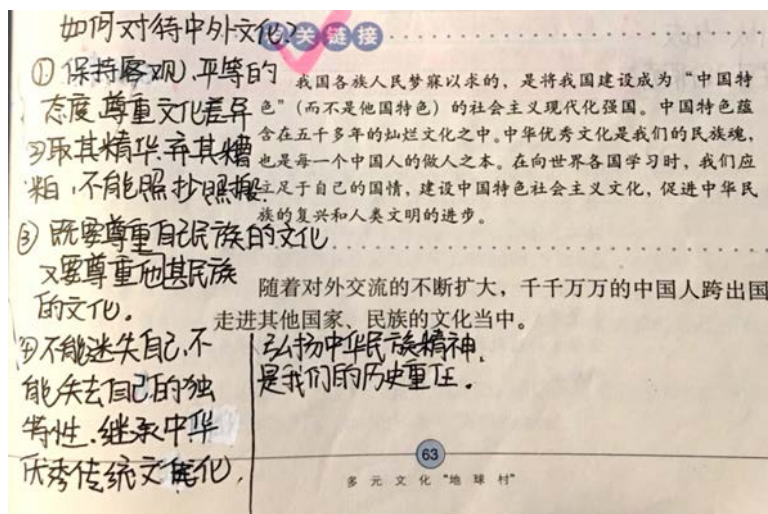 如何对待中外文化?
①保持客观、平等的
态度尊重文化差异
②取其精华,弃其糟
粕,不能照抄照搬.
③既要尊重自己民族的文化
又要尊重他甚民族
的文化。
④不能迷失自己,不
能失去自己的独
特性.继承中华
优秀传统文化,
弘扬中华民族精神,
是我们的历史重任。
关链接
我国各族人民梦寐以求的,是将我国建设成为“中国特
色”(而不是他国特色)的社会主义现代化强国。中国特色蕴
含在五千多年的灿烂文化之中。中华优秀文化是我们的民族魂,
也是每一个中国人的做人之本。在向世界各国学习时,我们应
立足于自己的国情,建设中国特色社会主义文化,促进中华民
族的复兴和人类文明的进步。
随着对外交流的不断扩大,千千万万的中国人跨出国
走进其他国家、民族的文化当中。
63
多元文化“地球村”